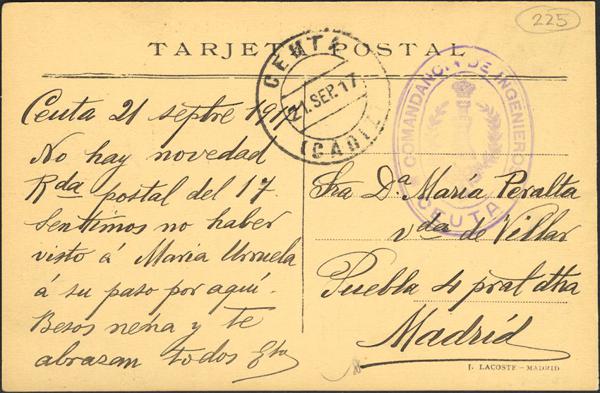 225
TARJETA POSTAL
CEUTA
21.SEP.17
(CADIZ)
COMANDANCIA DE INGENIEROS
CEUTA
Ceuta 21 septre 1917
No hay novedad
Rda postal del 17.
Sentimos no haber
visto á Maria Urruela
á su paso por aquí.
Besos nena y te
abrazan todos
Sra Dª María Peralta
vda de Villar
Puebla 4 pral dha
Madrid
J. LACOSTE - MADRID